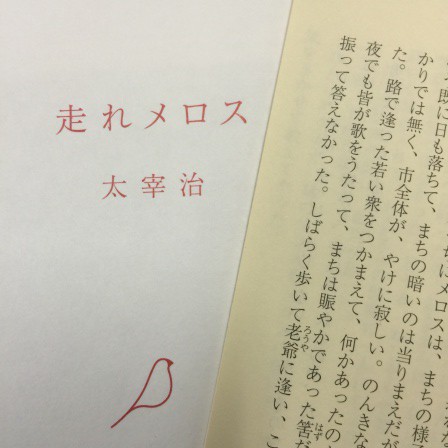 走れメロス
太宰治
にメロスは、まちの様
既に日も落ちて、まちの暗いのは当りまえだが
かりでは無く、市全体が、やけに寂しい。のんきな
た。路で逢った若い衆をつかまえて、何かあったの
夜でも皆が歌をうたって、まちは賑やかであった筈だ
振って答えなかった。しばらく歩いて老爺に逢い、こ
ろうや
はず